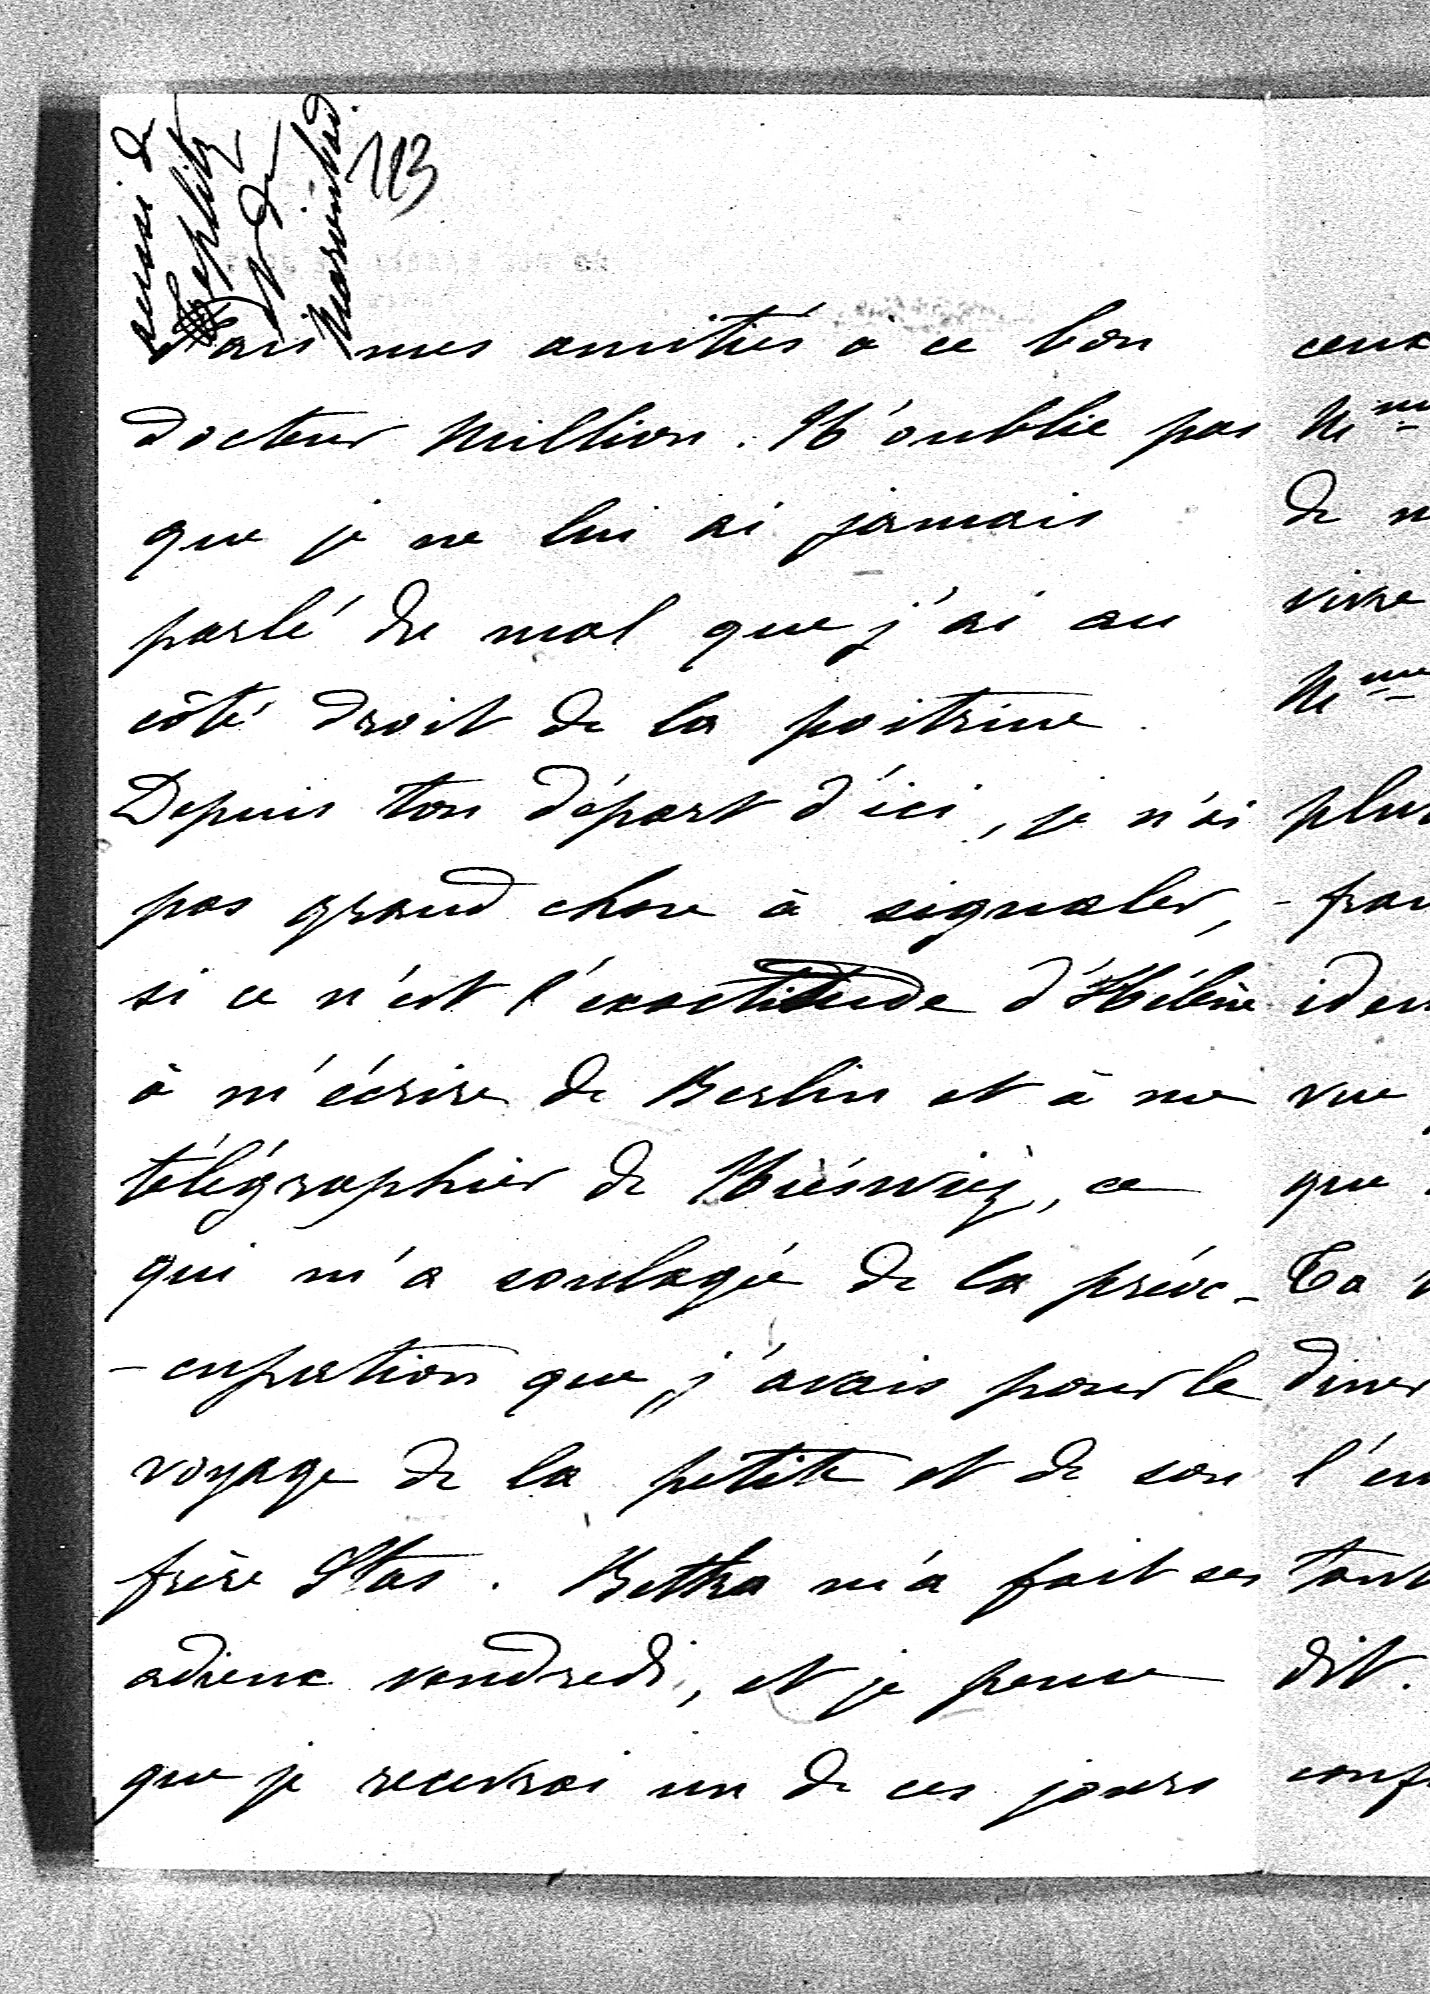 aussi de
Tœplitz
et de
Marienbad.
113
Fais mes amitiés à ce bon
docteur Million. N'oublie pas
que je ne lui ai jamais
parlé du mal que j'ai au
côté droit de la poitrine.
Depuis ton départ d'ici, je n'ai
pas grand chose à signaler,
si ce n'est l'exactitude d'Hélène
à m'écrire de Berlin et à me
télégraphier de Nieśwież, ce
qui m'a soulagée de la préoc-
-cupation que j'avais pour le
voyage de la petite et de son
frère Stas. Betka m'a fait ses
adieux vendredi, et je pense
que je recevrai un de ces jours
ceux
Mme
de
vivre
Mme
plus
-
iden
vue
que
Ta
diner
l'en
tant
dit.
conf